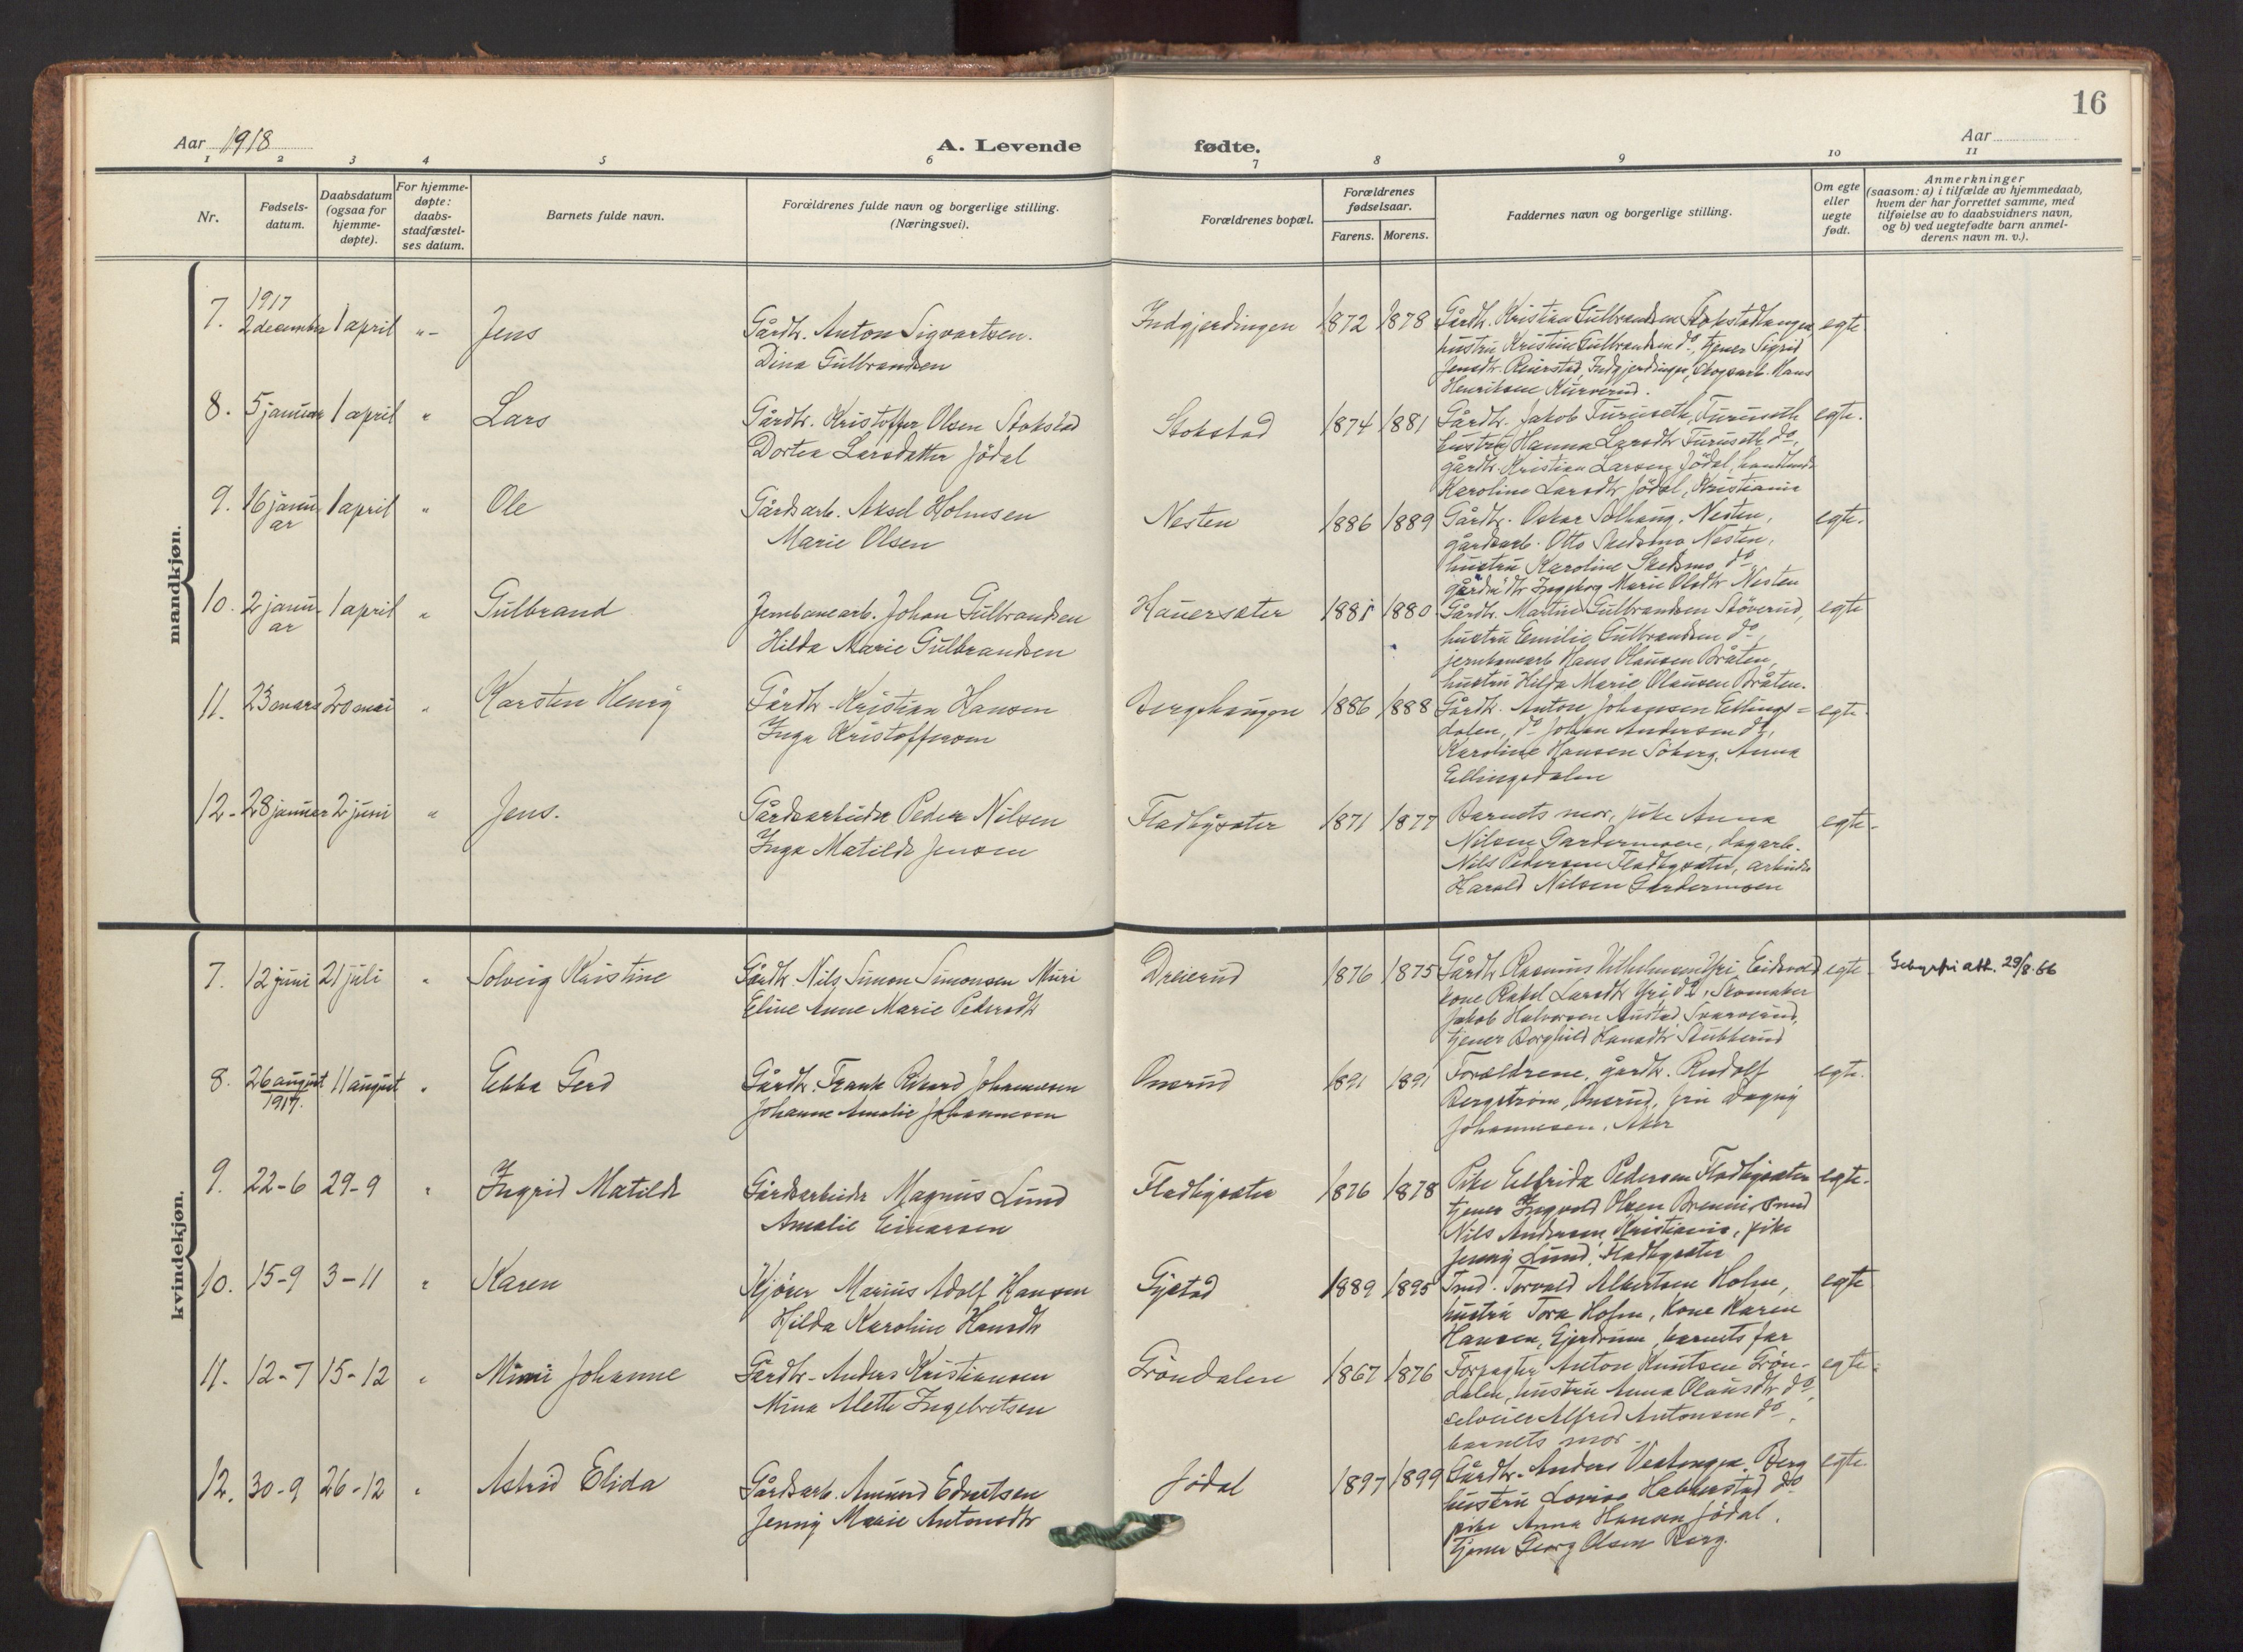 16
Aar 1918
A. Levende fødte.
Aar
1 2 3 4 5 6 7 8 9 10 11
Nr.
Fødsels-
datum.
Daabsdatum
(ogsaa for
hjemme-
døpte).
For hjemme-
døpte:
daabs-
stadfæstel-
ses datum.
Barnets fulde navn.
Forældrenes fulde navn og borgerlige stilling.
(Næringsvei).
Forældrenes bopæl.
Forældrenes
fødselsaar.
Farens. Morens.
Faddernes navn og borgerlige stilling.
Om egte
eller
uegte
født.
Anmerkninger
(saasom: a) i tilfælde av hjemmedaab,
hvem der har forrettet samme, med
tilføielse av to daabsvidners navn,
og b) ved uegtefødte barn anmel-
derens navn m. v.).
mandkjøn.
7. 1917
2 december 1 april "- Jens
Gårdbr. Anton Sigvartsen.
Dina Gulbrandsen
Indgjerdingen 1872 1878
Gårdbr. Kristian Gulbrandsen Stokstadhangen,
hustru Kristine Gulbrandsen do, tjener Sigrid
Jensdtr. Reierstad, Indgjerdingen, skogsarb. Hans
Henriksen Kurverud.
egte
8. 5 januar 1 april " Lars
Gårdbr. Kristoffer Olsen Stokstad
Dortea Larsdatter Jödal
Stokstad 1874 1881
Gårdbr. Jakob Furuseth, Furuseth
hustru Hanna Larsdtr Furuseth do,
gårdbr. Kristian Larsen Jödal, handlende
Karoline Larsdtr Jödal, Kristiania
egte.
9. 16 janu-
ar 1 april " Ole
Gårdsarb. Aksel Holmsen
Marie Olsen
Nesten 1886 1889
Gårdbr. Oskar Solhaug, Nesten,
gårdsarb. Otto Skedsmo Nesten,
hustru Karoline Skedsmo do
gårdm.dtr Ingeborg Marie Olsdtr Nesten
egte.
10. 2 janu-
ar 1 april " Gulbrand
Jernbanearb. Johan Gulbrandsen
Hilda Marie Gulbrandsen
Hauersæter 1881 1880
Gårdbr. Martin Gulbrandsen Støverud,
hustru Emilie Gulbrandsen do,
jernbanearb Hans Olausen Bråten,
hustru Hilda Marie Olausen Bråten.
egte
11. 23 mars 20 mai " Karsten Henry
Gårdbr. Kristian Hansen
Inga Kristoffersen
Bergshaugen 1886 1888
Gårdbr. Anton Johansen Ellings=
dalen, do Johan Andersen do,
Karoline Hansen Söberg, Anna
Ellingsdalen
egte.
12. 28 januar 2 juni " Jens.
Gårdsarbeider Peder Nilsen
Inga Matilde Jensen
Fladbysæter 1871 1877
Barnets mor, pike Anna
Nilsen Gardermoen, dagarb.
Nils Pedersen Fladbysæter, arbeider
Harald Nilsen Gardermoen
egte.
kvindekjøn.
7. 12 juni 21 juli " Solveig Kristine
Gårdbr Nils Simon Simonsen Muri
Eline Anne Marie Pedersdtr
Dreierud 1876 1875
Gårdbr Rasmus Vilhelmsen Yri, Eidsvold
kone Rakel Larsdtr Yri do, Skomaker
Jakob Halvorsen Austad Svarverud,
tjener Borghild Hansdtr Stubberud
egte.
Gebyrfri att. 29/8.66
8. 26 august
1917. 11 august " Ebba Gerd
Gårdbr. Frank Rikard Johannesen
Johanne Amalie Johannesen
Onsrud 1891 1891
Forældrene, gårdbr. Rudolf
Bergström, Onsrud, fru Dagny
Johannesen, Aker
egte.
9. 22-6 29-9 " Ingrid Matilde
Gårdsarbeider Magnus Lund
Amalie Einarsen
Fladbysæter 1876 1878
Pike Elfrida Pedersen Fladbysæter
tjener Ingvald Olsen Brenni, smed
Nils Andersen Kristiania, pike
Jenny Lund, Fladbysæter
egte.
10. 15-9 3-11 " Karen
Kjører Marius Adolf Hansen
Hilda Karoline Hansdtr
Gystad 1889 1895
Smed. Torvald Albertsen Holm,
hustru Tora Holm, Kone Karen
Hansen, Gjerdrum, barnets far
egte
11. 12-7 15-12 " Mimi Johanne
Gårdbr. Anders Kristiansen
Mina Alette Ingebretsen
Gröndalen 1867 1876
Forpagter Anton Knutsen Grön-
dalen, hustru Anna Olausdtr do,
selveier Alfred Antonsen do,
barnets mor.
egte.
12. 30-9 26-12 " Astrid Elida
Gårdsarb. Amund Edvartsen
Jenny Marie Antonsdtr
Jödal 1897 1899
Gårdbr. Anders Berg
hustru Lovisa do
pike Anna Hansen Jödal,
tjener Georg Olsen Berg.
egte.